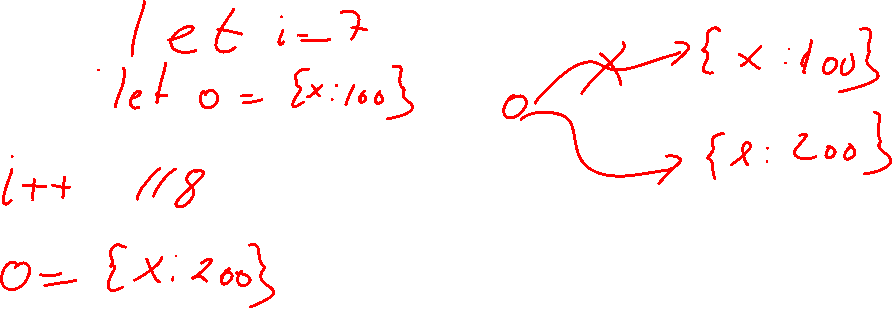 let i=7
let o = {x:100}
i++ //8
o= {x:200}
o
{x:100}
{x:200}